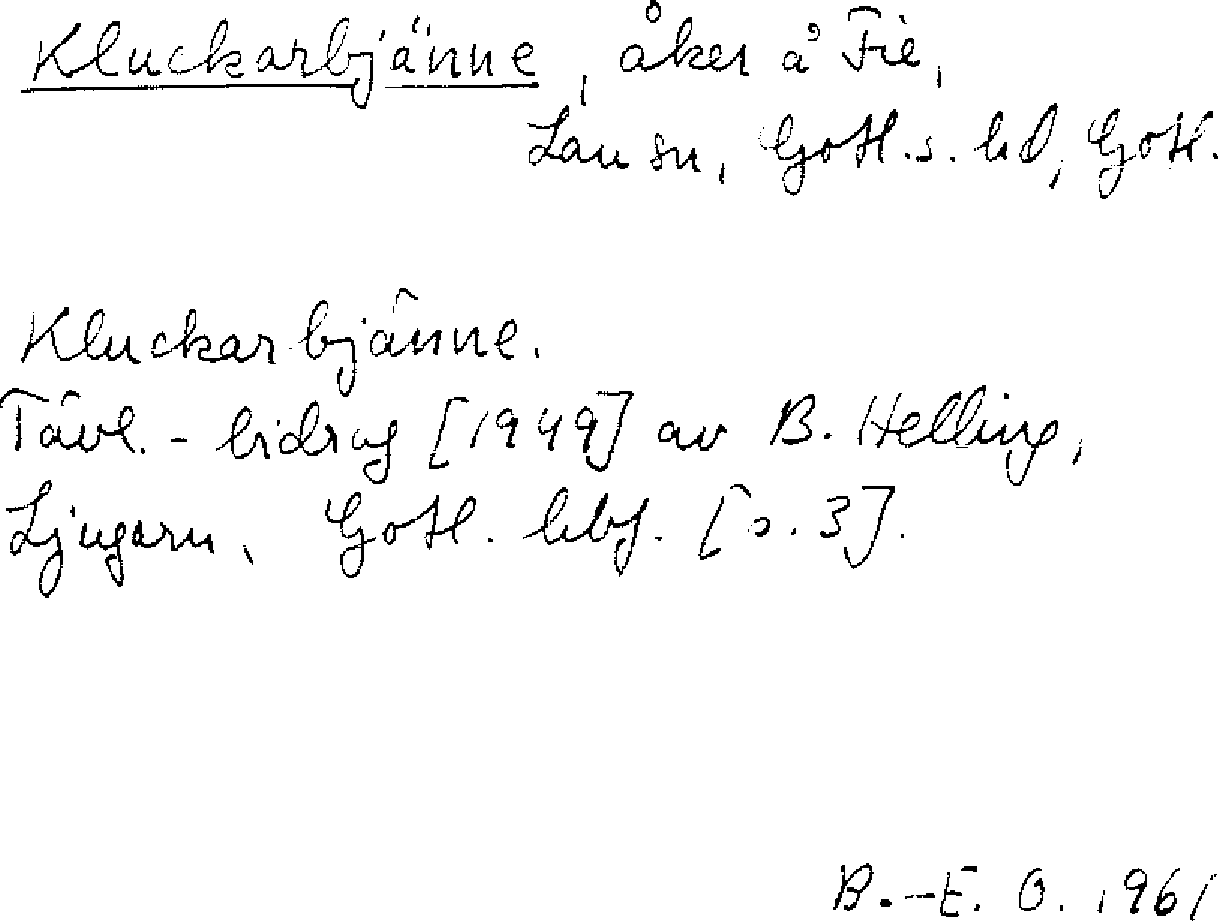 Kluckarbjänne, åker å Fie,
Lau sn, Gotl. s. hd, Gotl.
Kluckarbjänne.
Tävl.-bidrag [1949] av B. Helling,
Ljugarn, Gotl. hbf. [s. 3].
B.-E. O. 1961